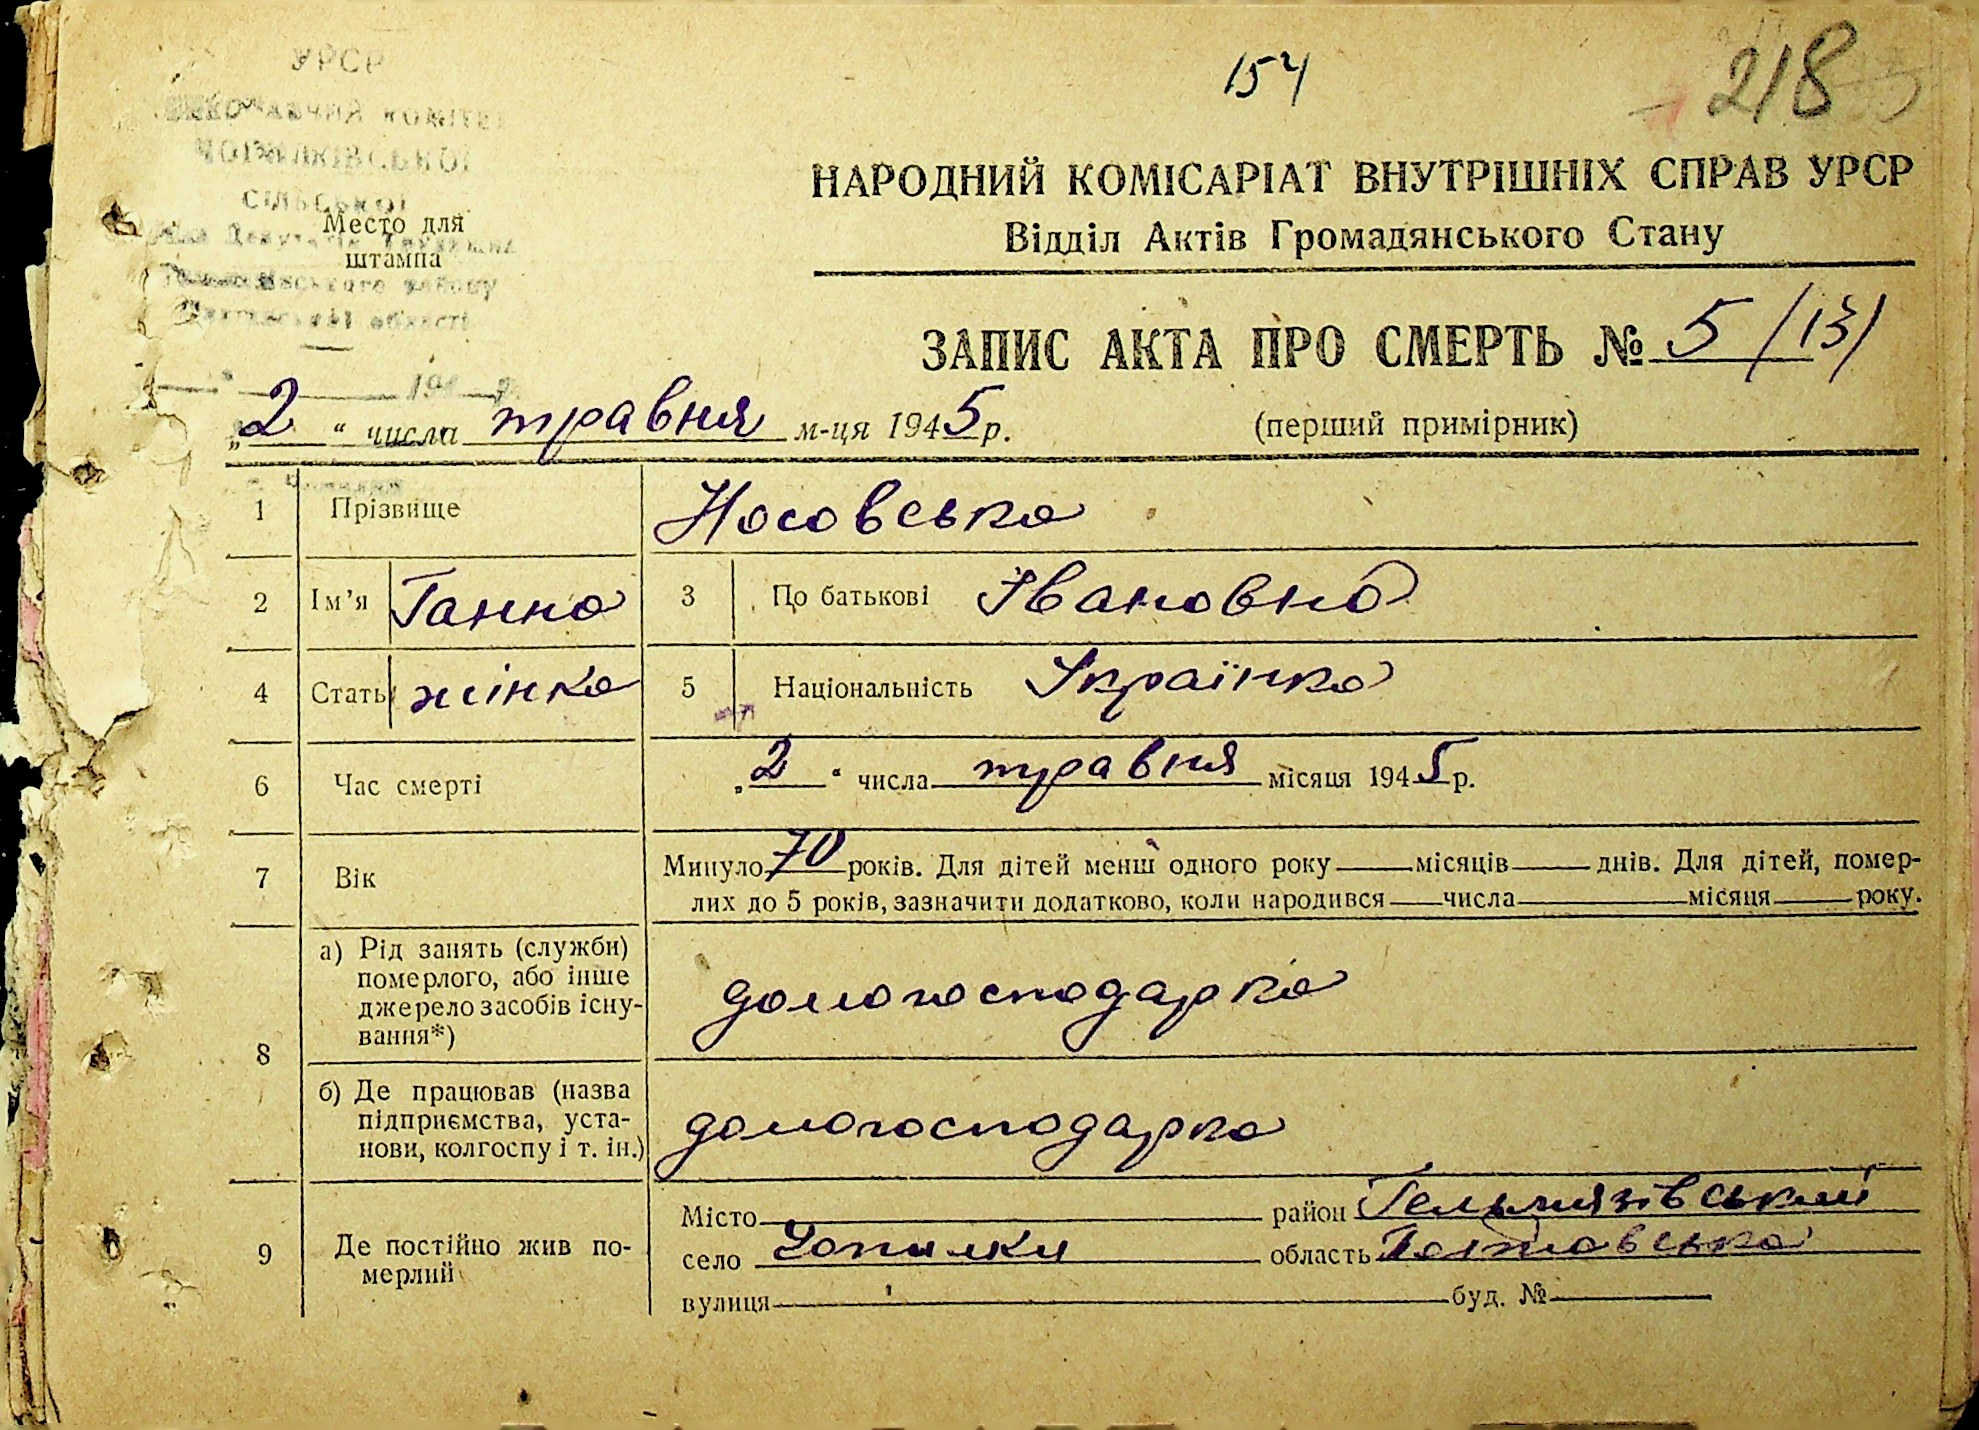 УРСР
154
218
СІЛЬСЬКОЇ
Место для
штампа
НАРОДНИЙ КОМІСАРІАТ ВНУТРІШНІХ СПРАВ УРСР
Відділ Актів Громадянського Стану
ЗАПИС АКТА ПРО СМЕРТЬ № 5 /13/
„2“ числа травня м-ця 1945 р.
(перший примірник)
1 Прізвище Носовська
2 Ім’я Ганна 3 По батькові Івановна
4 Стать жінка 5 Національність Українка
6 Час смерті „2“ числа травня місяця 1945 р.
7 Вік Минуло 70 років. Для дітей менш одного року місяців днів. Для дітей, помер-
лих до 5 років, зазначити додатково, коли народився числа місяця року.
8 а) Рід занять (служби)
померлого, або інше
джерело засобів існу-
вання*)
домогосподарка
б) Де працював (назва
підприємства, уста-
нови, колгоспу і т. ін.)
домогосподарка
9 Де постійно жив по-
мерлий
Місто район Гельмязівський
село область Полтавська
вулиця буд. №